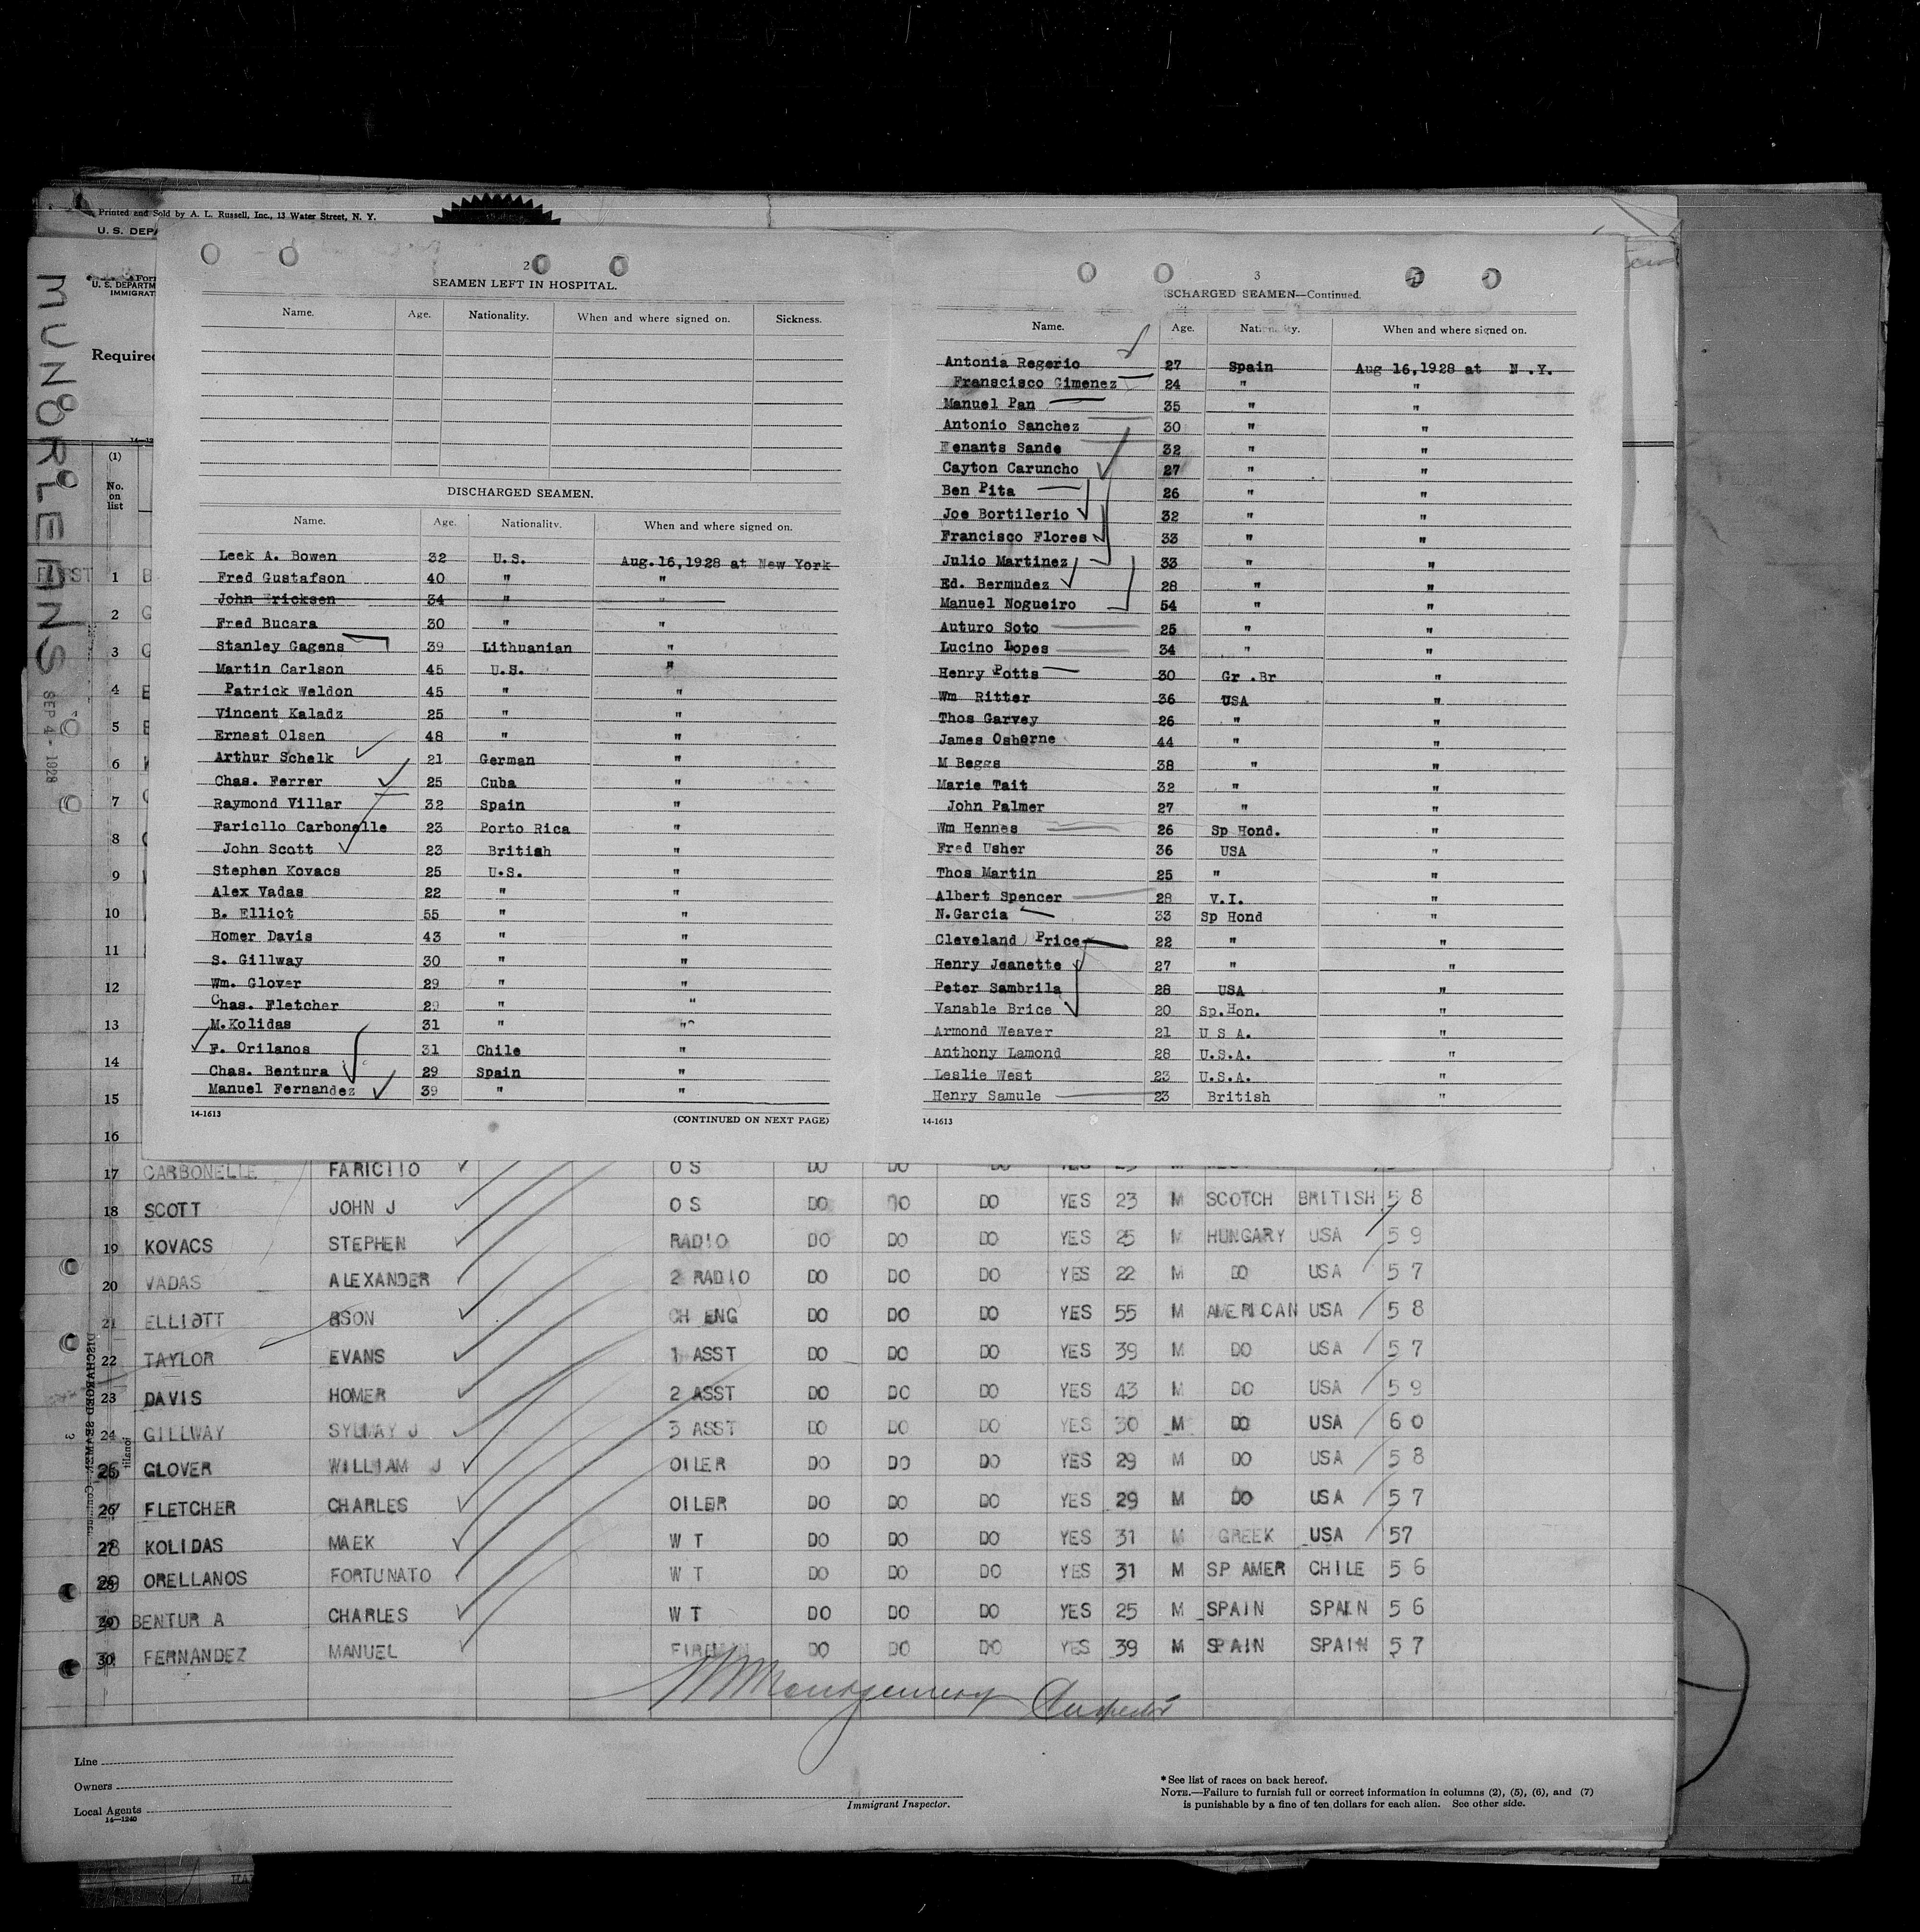 Printed and Sold by A. L. Russell, Inc., 13 Water Street, N. Y.
U. S. DEP
U. S. DEPARTM
IMMIGRAT
Required
MUNORLEANS
SEP 4 - 1928
2
SEAMEN LEFT IN HOSPITAL.
Name. Age. Nationality. When and where signed on. Sickness.
DISCHARGED SEAMEN.
Name. Age. Nationality. When and where signed on.
Leek A. Bowen 32 U.S. Aug.16,1928 at New York
Fred Gustafson 40 " "
John Ericksen 34 " "
Fred Bucara 30 " "
Stanley Gagens 39 Lithuanian "
Martin Carlson 45 U.S. "
Patrick Weldon 45 " "
Vincent Kaladz 25 " "
Ernest Olsen 48 " "
Arthur Schelk 21 German "
Chas. Ferrer 25 Cuba "
Raymond Villar 32 Spain "
Faricllo Carbonelle 23 Porto Rica "
John Scott 23 British "
Stephen Kovacs 25 U.S. "
Alex Vadas 22 " "
B. Elliot 55 " "
Homer Davis 43 " "
S. Gillway 30 " "
Wm. Glover 29 " "
Chas. Fletcher 29 " "
M.Kolidas 31 " "
F. Orilanos 31 Chile "
Chas. Bentura 29 Spain "
Manuel Fernandez 39 " "
14-1613 (CONTINUED ON NEXT PAGE)
3
SCHARGED SEAMEN—Continued.
Name. Age. Nationality. When and where signed on.
Antonia Regerio 27 Spain Aug 16,1928 at N.Y.
Franscisco Gimenez 24 " "
Manuel Pan 35 " "
Antonio Sanchez 30 " "
enants Sande 32 " "
Cayton Caruncho 27 " "
Ben Pita 26 " "
Joe Bortilerio 32 " "
Francisco Flores 33 " "
Julio Martinez 33 " "
Ed. Bermudez 28 " "
Manuel Nogueiro 54 " "
Auturo Soto 25 " "
Lucino Lopes 34 " "
Henry Potts 30 Gr .Br "
Wm Ritter 36 USA "
Thos Garvey 26 " "
James Osborne 44 " "
M Beggs 38 " "
Marie Tait 32 " "
John Palmer 27 " "
Wm Hennes 26 Sp Hond. "
Fred Usher 36 USA "
Thos Martin 25 " "
Albert Spencer 28 V.I. "
N.Garcia 33 Sp Hond "
Cleveland Price 22 " "
Henry Jeanette 27 " "
Peter Sambrila 28 USA "
Vanable Brice 20 Sp.Hon. "
Armond Weaver 21 U S A. "
Anthony Lamond 28 U.S.A. "
Leslie West 23 U.S.A. "
Henry Samule 23 British "
14-1613
(1)
No. on list
1
2
3
4
5
6
7
8
9
10
11
12
13
14
15
16
17 CARBONELLE FARICIIO O S DO DO DO YES
18 SCOTT JOHN J O S DO DO DO YES 23 M SCOTCH BRITISH 5 8
19 KOVACS STEPHEN RADIO DO DO DO YES 25 M HUNGARY USA 5 9
20 VADAS ALEXANDER 2 RADIO DO DO DO YES 22 M DO USA 5 7
21 ELLIOTT BSON CH ENG DO DO DO YES 55 M AMERICAN USA 5 8
22 TAYLOR EVANS 1 ASST DO DO DO YES 39 M DO USA 5 7
23 DAVIS HOMER 2 ASST DO DO DO YES 43 M DO USA 5 9
24 GILLWAY SYLWAY J 3 ASST DO DO DO YES 30 M DO USA 6 0
25 GLOVER WILLIAM J OILER DO DO DO YES 29 M DO USA 5 8
26 FLETCHER CHARLES OILER DO DO DO YES 29 M DO USA 5 7
27 KOLIDAS MAEK W T DO DO DO YES 31 M GREEK USA 57
ORELLANOS FORTUNATO W T DO DO DO YES 31 M SP AMER CHILE 5 6
BENTUR A CHARLES W T DO DO DO YES 25 M SPAIN SPAIN 5 6
30 FERNANDEZ MANUEL DO DO DO YES 39 M SPAIN SPAIN 5 7
Montgomery
Line
Owners
Local Agents
14—1240
Immigrant Inspector.
*See list of races on back hereof.
NOTE.—Failure to furnish full or correct information in columns (2), (5), (6), and (7)
is punishable by a fine of ten dollars for each alien. See other side.